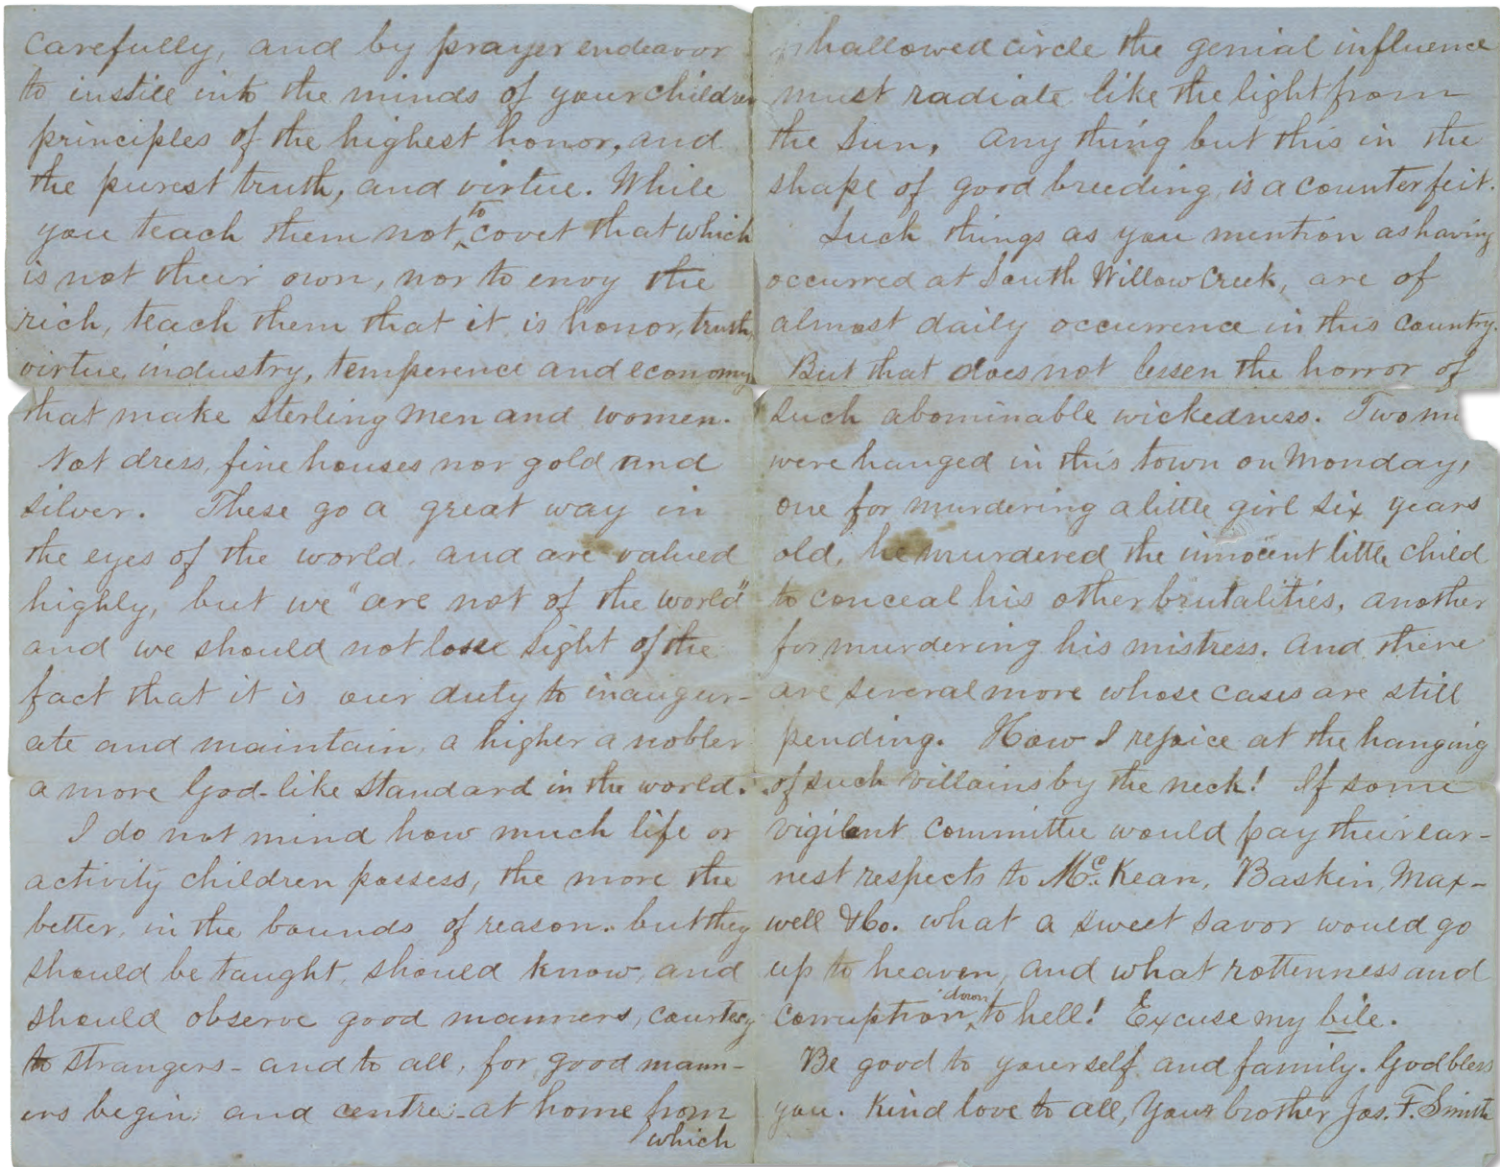 carefully, and by prayer endeavor
to instill into the minds of your children
principles of the highest honor, and
the purest truth, and virtue. While
you teach them not to covet that which
is not their own, nor to envy the
rich, teach them that it is honor, truth,
virtue, industry, temperence and economy
that make sterling men and women.
Not dress, fine houses nor gold and
silver. These go a great way in
the eyes of the world, and are valued
highly, but we "are not of the world"
and we should not lose sight of the
fact that it is our duty to inaugur-
ate and maintain, a higher a nobler
a more God-like standard in the world.
I do not mind how much life or
activity children possess, the more the
better, in the bounds of reason. but they
should be taught, should know, and
should observe good manners, courtesy
to strangers - and to all, for good mann-
ers begin and centre at home from
which
hallowed circle the genial influence
must radiate like the light from
the Sun. Any thing but this in the
shape of good breeding is a counterfeit.
Such things as you mention as having
occurred at South Willow Creek, are of
almost daily occurrence in this country.
But that does not lessen the horror of
such abominable wickedness. Two
were hanged in this town on Monday,
one for murdering a little girl six years
old, he murdered the innocent little child
to conceal his other brutalities, another
for murdering his mistress. and there
are several more whose cases are still
pending. How I rejoice at the hanging
of such villains by the neck! If some
vigilent committee would pay their ear-
nest respects to McKean, Baskin, Max-
well & Co. what a sweet savor would go
up to heaven, and what rottenness and
corruption down to hell! Excuse my bile.
Be good to yourself and family. God bless
you. Kind love to all, Your brother Jos. F. Smith